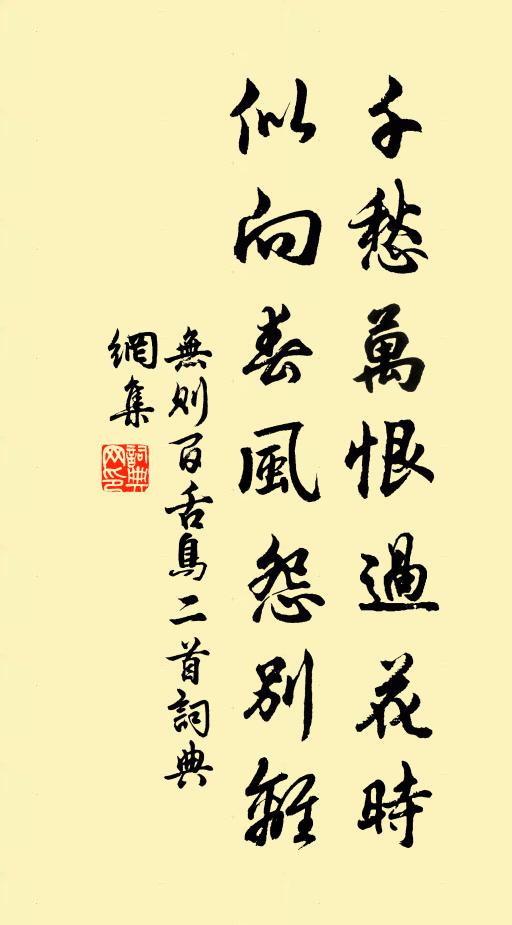 千愁萬恨過花時
似向春風怨別離
無則百舌鳥二首詞典
網集
詞典網印